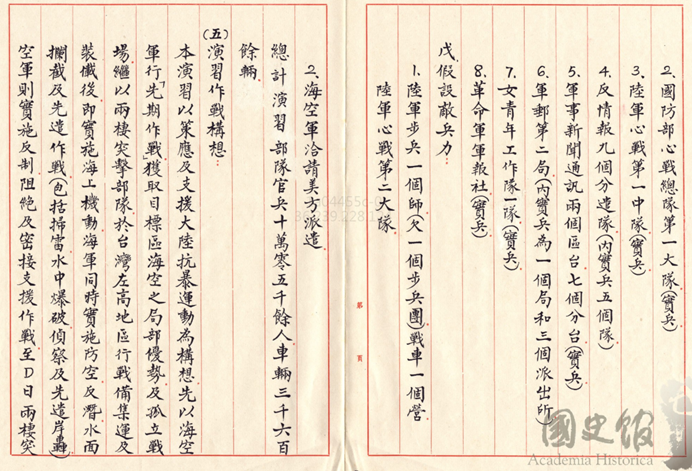 2.國防部心戰總隊第一大隊(實兵)
3.陸軍心戰第一中隊(實兵)
4.反情報九個分遣隊(內實兵五個隊)
5.軍事新聞通訊兩個區台七個分台(實兵)
6.軍郵第二局(內實兵為一個局和三個派出所)
7.女青年工作隊一隊(實兵)
8.革命軍軍報社(實兵)
戊假設敵兵力:
1.陸軍步兵一個師(欠一個步兵團)戰車一個營
陸軍心戰第二大隊
第 頁
2.海空軍洽請美方派遣
總計演習部隊官兵十萬零五千餘人車輛三千六百
餘輛
(五)演習作戰構想:
本演習以策應及支援大陸抗暴運動為構想先以海空
軍行「先期作戰」獲取目標區海空之局部優勢及孤立戰
場繼以兩棲突擊部隊於台灣左高地區行戰備集運及
裝儎後即實施海上機動海軍同時實施防空反潛水面
攔截及先遣作戰(包括掃雷水中爆破偵察及先遣岸轟)
空軍則實施反制阻絕及密接支援作戰至D日兩棲突
國史館
Academia Historica